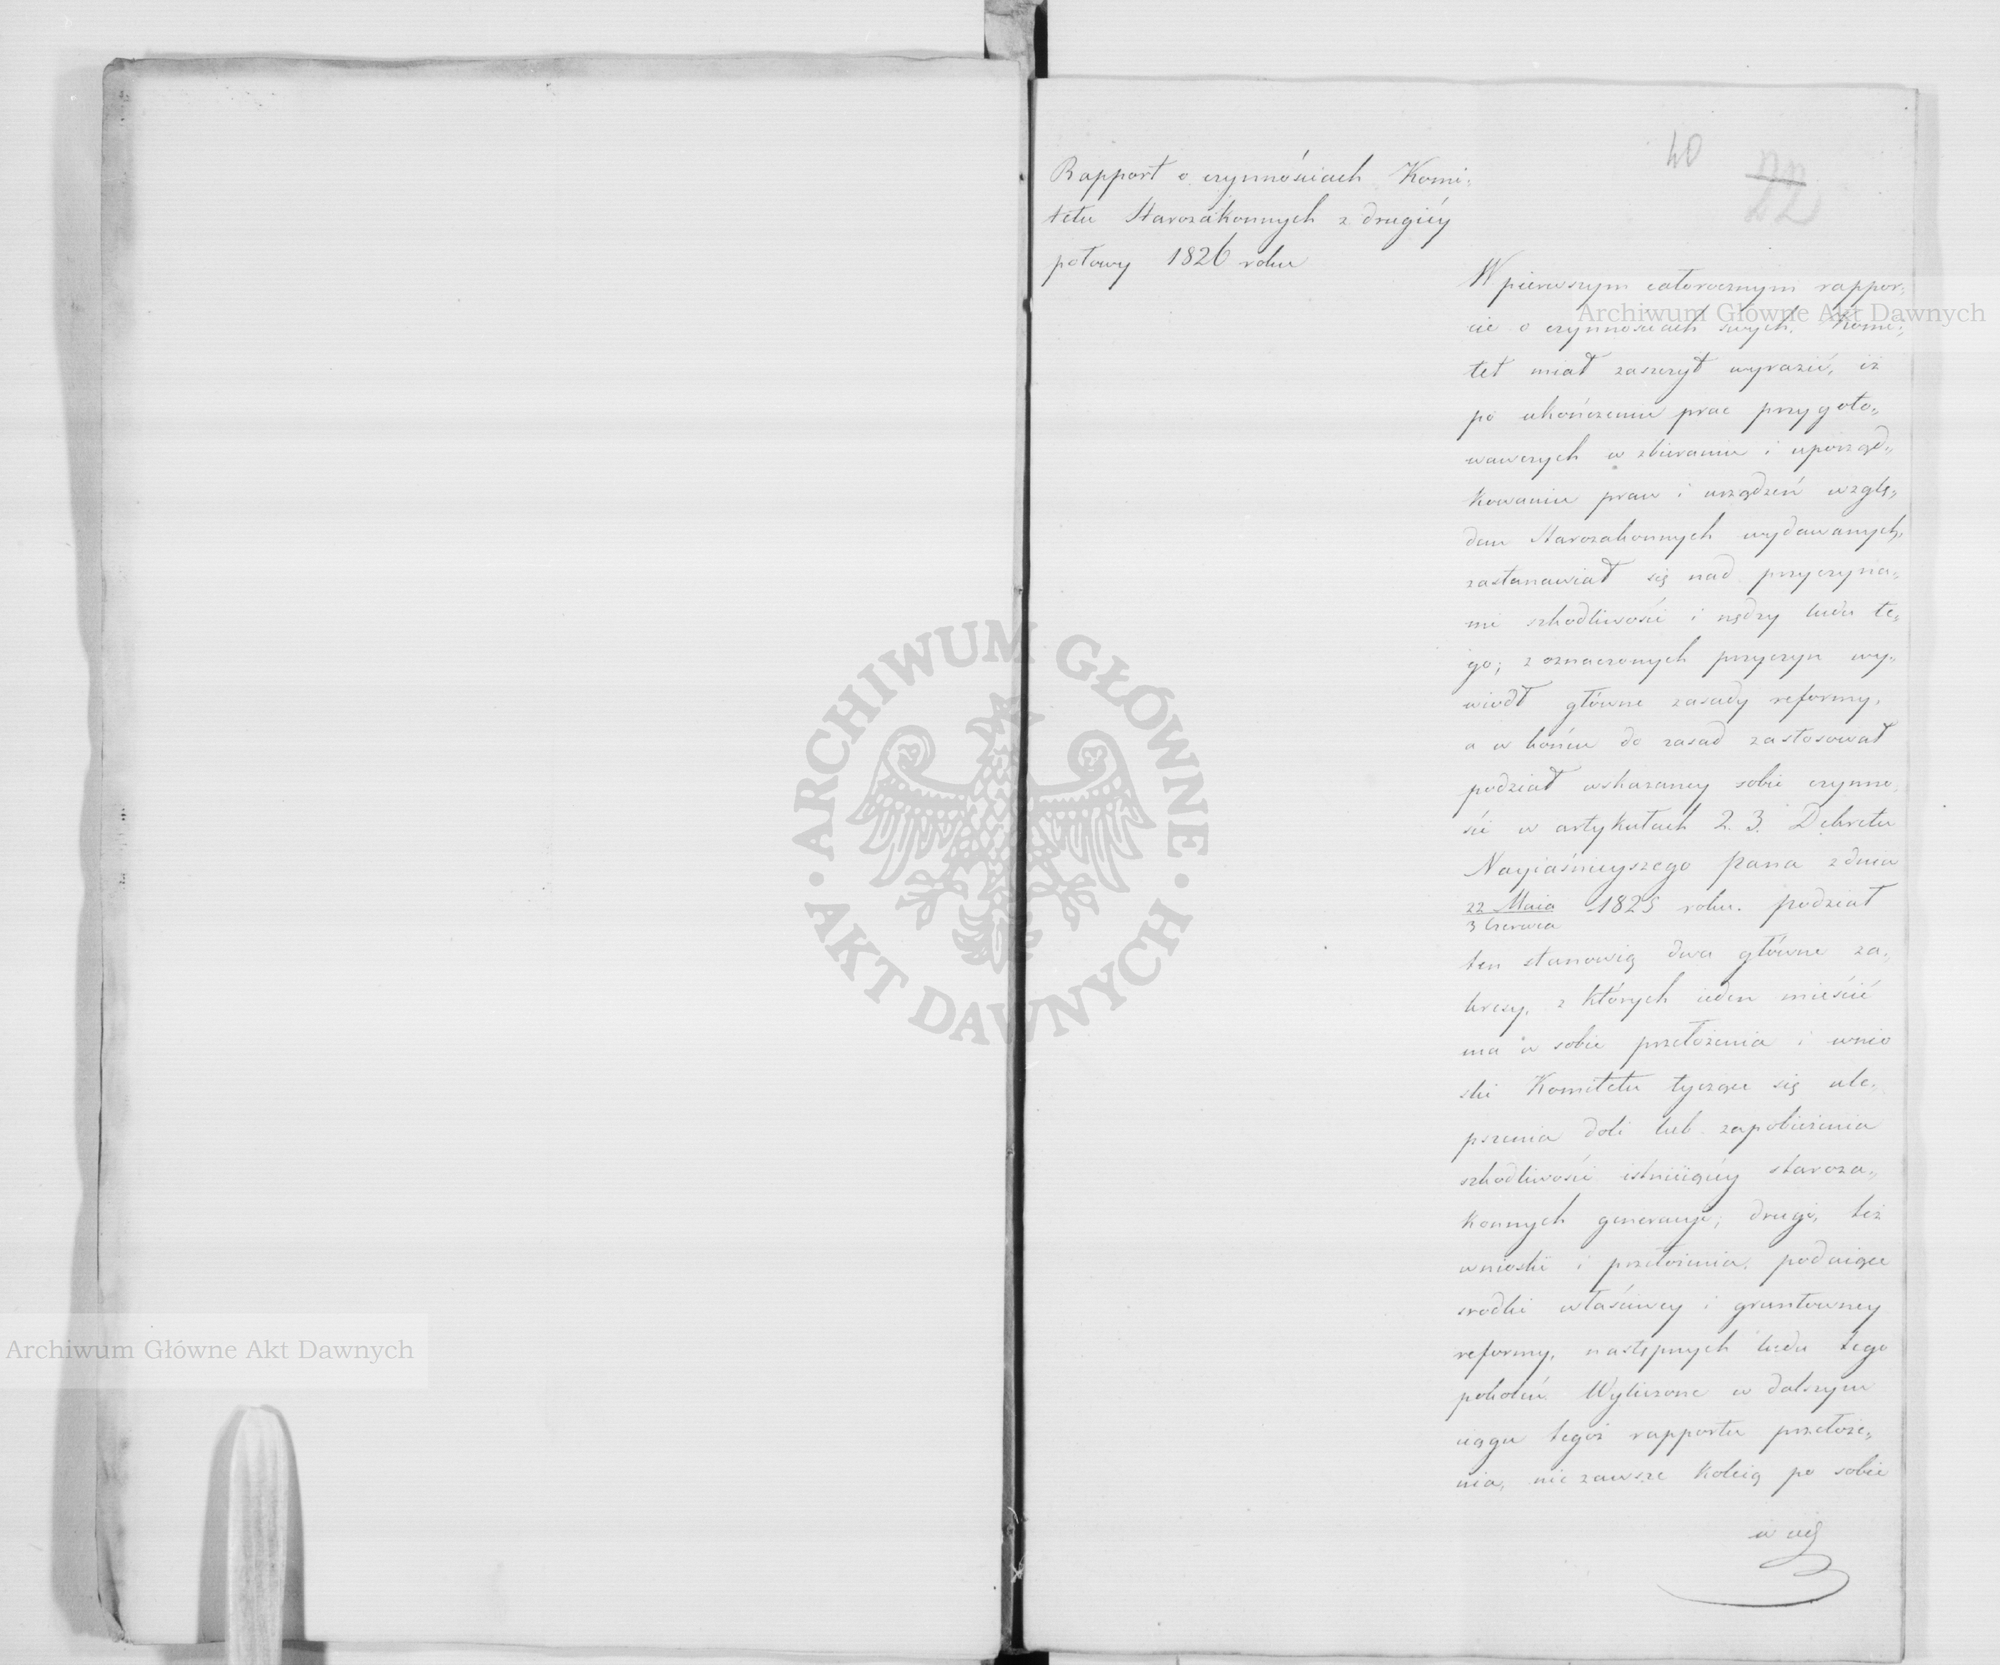 40
22
22
Rapport o czynnościach Komi-
tetu Starozakonnych z drugiéy
połowy 1826 roku
W pierwszym całorocznym rappor-
cie o czynnościach swych, Komi-
tet miał zaszczyt wyrazić, iż
po ukończeniu prac przygoto-
wawczych w zbieraniu i uporząd-
kowaniu praw i urządzeń wzglę-
dem Starozakonnych wydawanych,
zastanawiał się nad przyczyna-
mi szkodliwości i nędzy ludu te-
go; z oznaczonych przyczyn wy-
wiodł główne zasady reformy,
a w końcu do zasad zastosował
podział wskazaney sobie czynno-
ści w artykułach 2. 3. Dekretu
Nayiaśnieyszego pana z dnia
22 Maia 1825 roku. podział
3 Czerwca
ten stanowią dwa główne za-
kresy, z których ieden mieścić
ma w sobie przełożenia i wnio
ski Komitetu tyczące się ule-
pszenia doli lub zapobieżenia
szkodliwości istnieiącéy staroza-
konnych generacyi; drugi, też
wnioski i przełożenia, podaiące
srodki właściwey i gruntowney
reformy, następnych ludu tego
pokoleń. Wyliczone w dalszym
ciągu tegoż rapportu przełoże-
nia, nie zawsze koleią po sobie
Archiwum Główne Akt Dawnych
ARCHIWUM GŁÓWNE · AKT DAWNYCH ·
Archiwum Główne Akt Dawnych